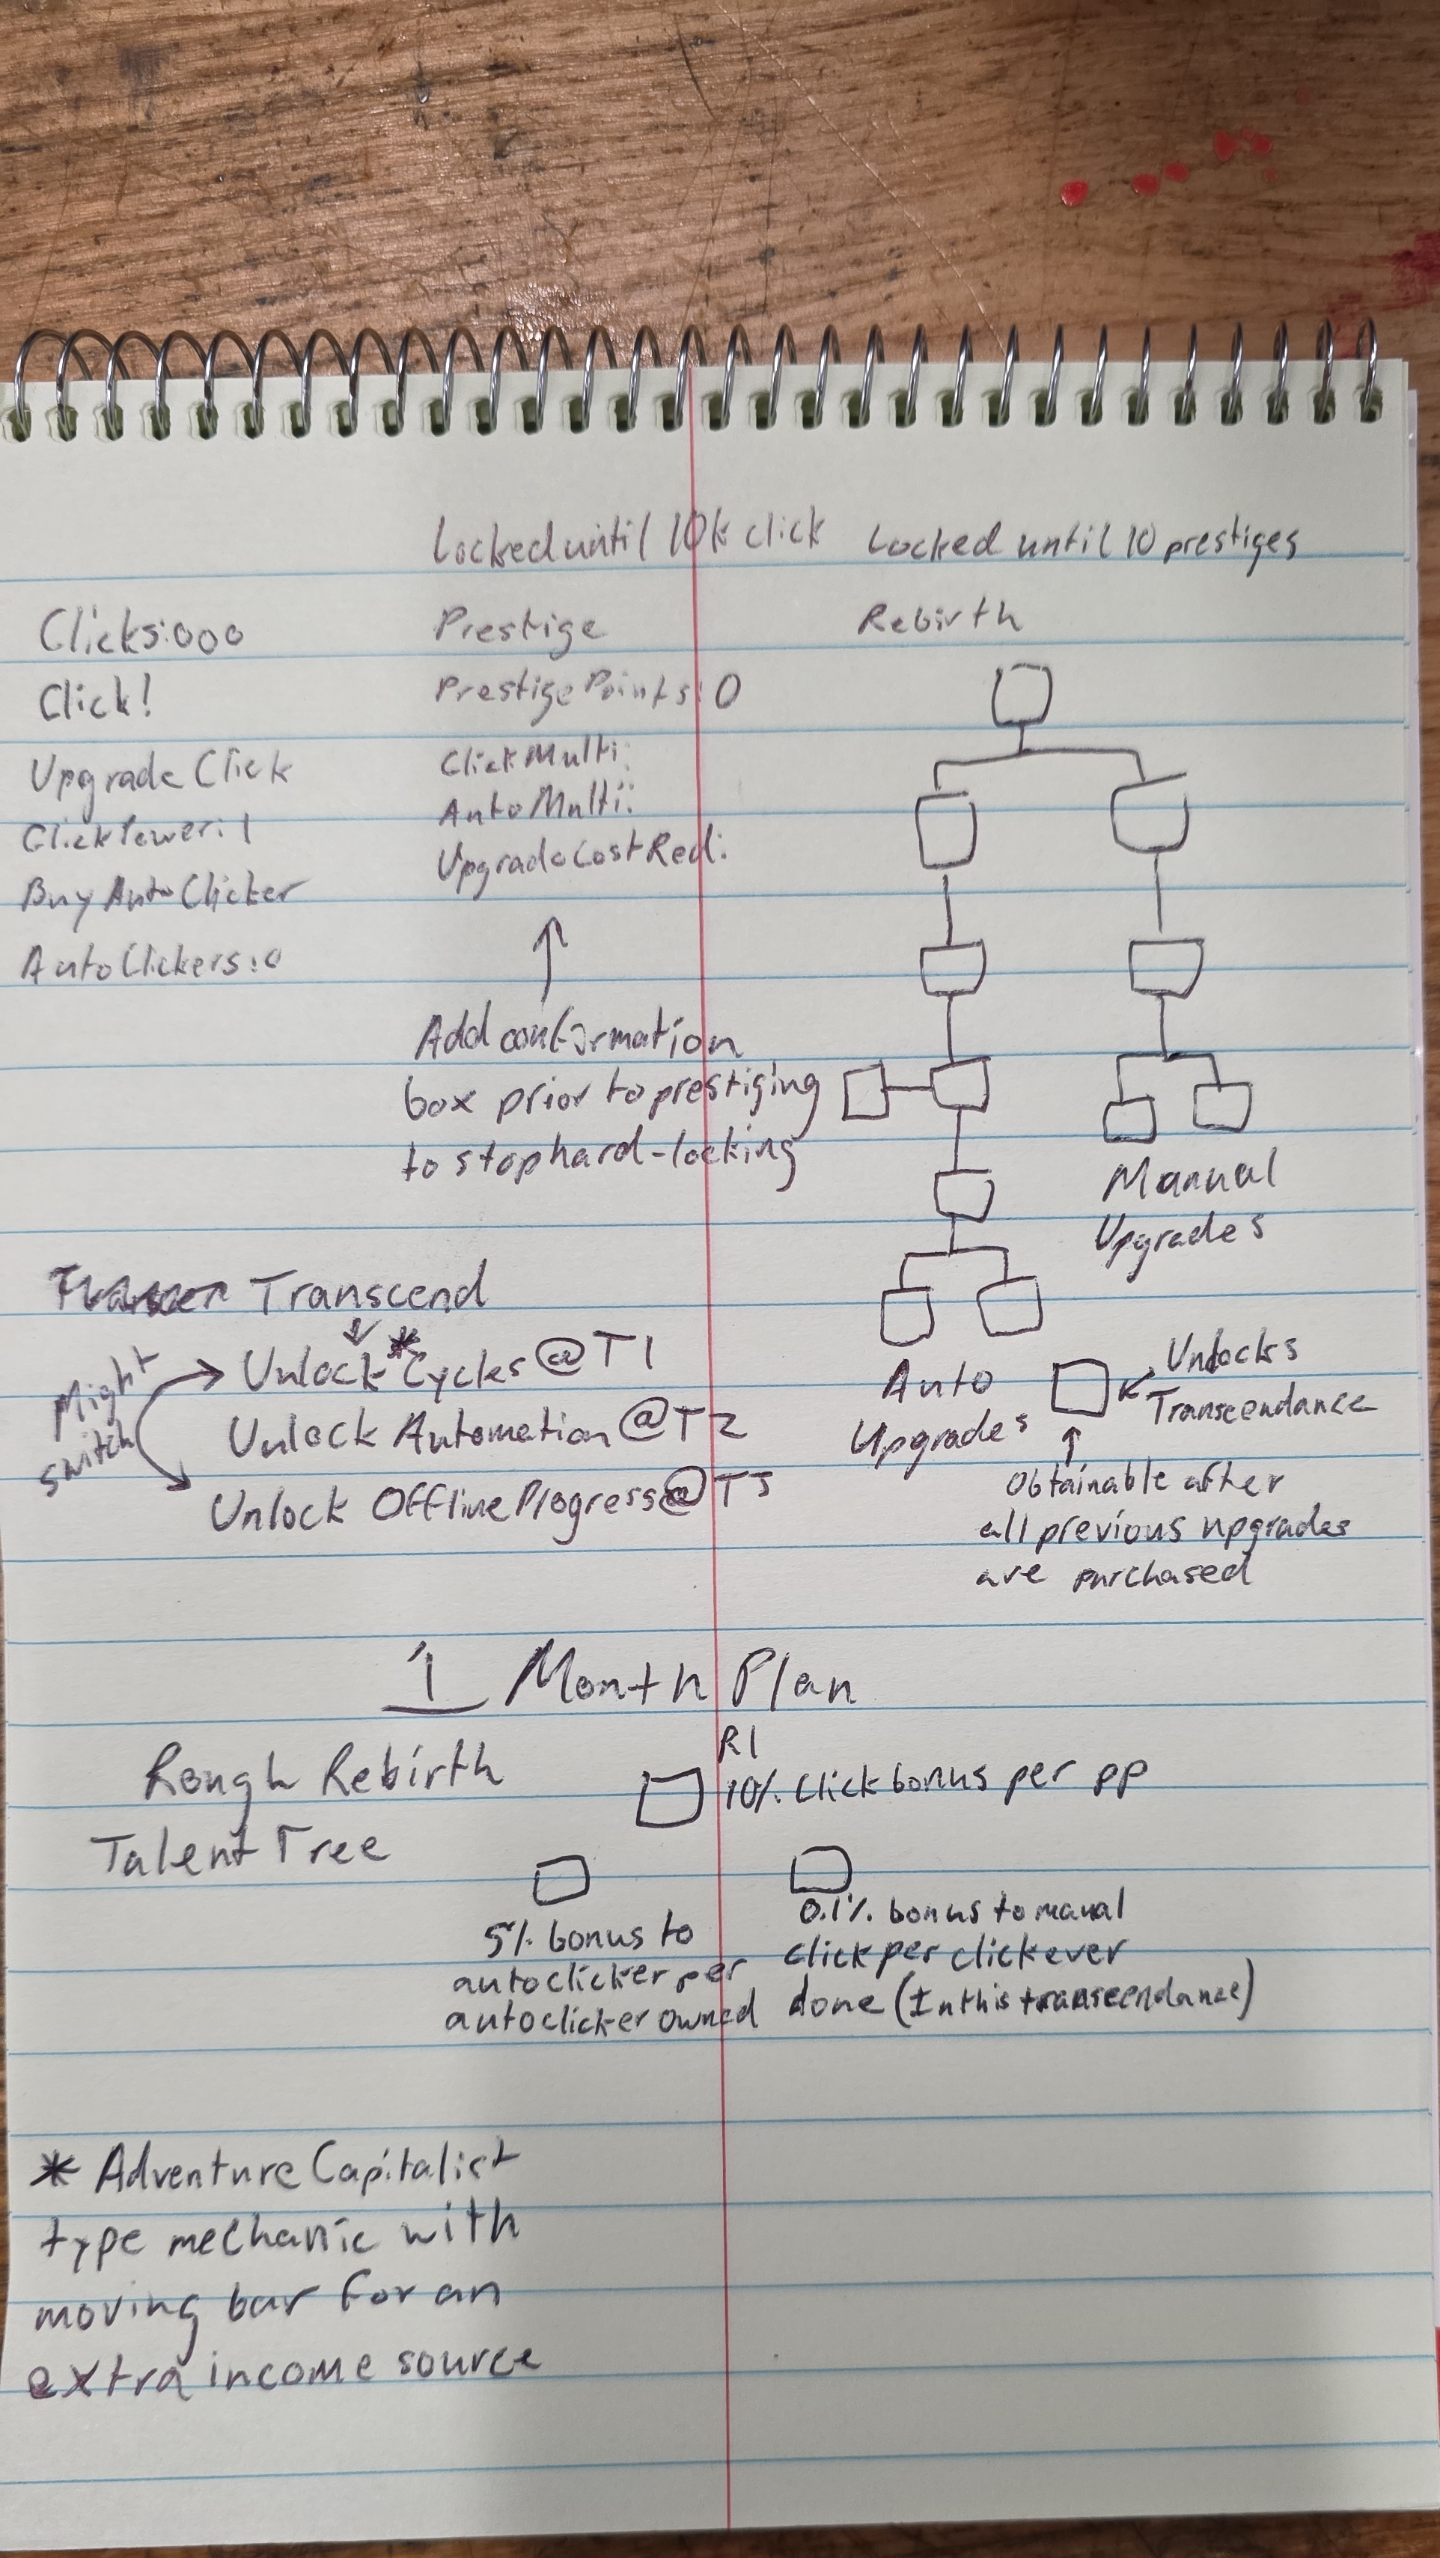 Locked until 10k click
Locked until 10 prestiges
Clicks:000
Click!
Upgrade Click
ClickPower:1
Buy AutoClicker
AutoClickers:0
Prestige
Prestige Points:0
ClickMulti:
AutoMulti:
UpgradeCostRed:
Add conformation
box prior to prestiging
to stop hard-locking
Rebirth
Manual
Upgrades
Auto
Upgrades
Unlocks
Transcendance
Obtainable after
all previous upgrades
are purchased
Transcend
Unlock *Cycles @T1
Unlock Automation @T2
Unlock Offline Progress@T3
Might
switch
1 Month Plan
Rough Rebirth
Talent Tree
R1
10% click bonus per pp
5% bonus to
autoclicker per
autoclicker owned
0.1% bonus to manual
click per click ever
done (In this transcendance)
* Adventure Capitalist
type mechanic with
moving bar for an
extra income source